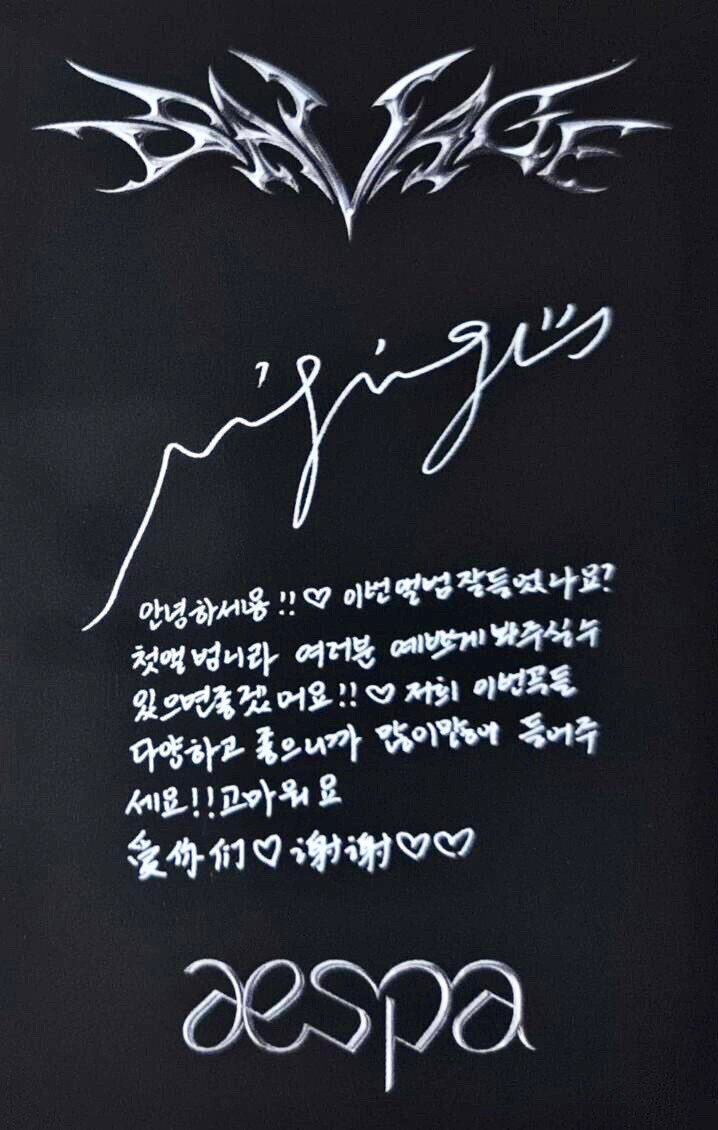 SAVAGE
안녕하세용!!♡ 이번앨범잘들었나요?
첫앨범니라 여러분 예쁘게 봐주실수
있으면좋겠어요!!♡ 저희 이번곡들
다양하고 좋으니까 많이많이 들어주
세요!!고마워요
爱你们♡谢谢♡♡
aespa